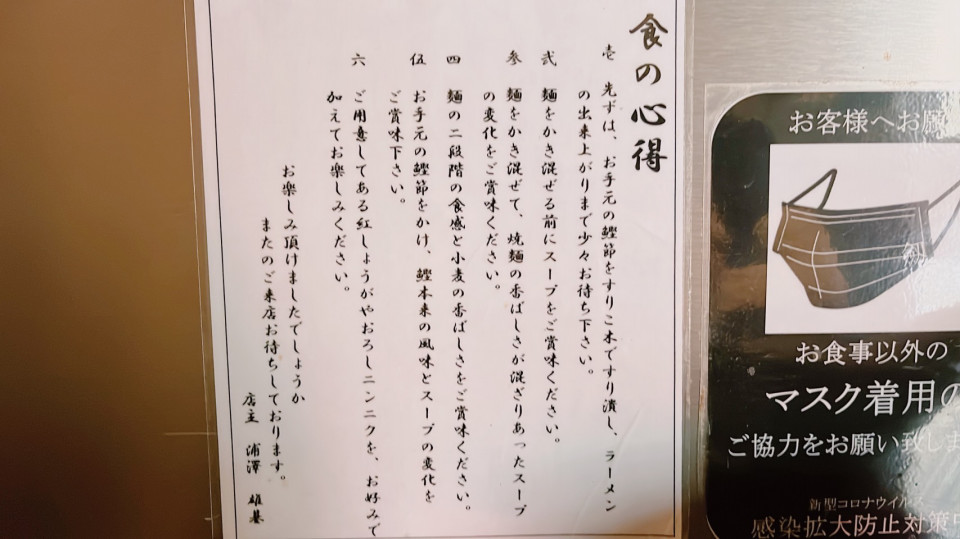 食の心得
壱 先ずは、お手元の鰹節をすりこ木ですり潰し、ラーメン
の出来上がりまで少々お待ち下さい。
弐 麺をかき混ぜる前にスープをご賞味ください。
参 麺をかき混ぜて、焼麺の香ばしさが混ざりあったスープ
の変化をご賞味ください。
四 麺の二段階の食感と小麦の香ばしさをご賞味ください。
伍 お手元の鰹節をかけ、鰹本来の風味とスープの変化を
ご賞味下さい。
六 ご用意してある紅しょうがやおろしニンニクを、お好みで
加えてお楽しみください。
お楽しみ頂けましたでしょうか
またのご来店お待ちしております。
店主 浦澤 雄基
お客様へお願
お食事以外の
マスク着用の
ご協力をお願い致しま
新型コロナウイルス
感染拡大防止対策中